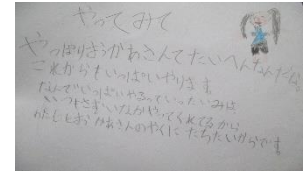 やってみて
やっぱりおかあさんてたいへんなんだな。
これからもいっぱいやります
なんでいっぱいやるっていったいみは
いつもさぎょういなんかやってくれてるから
わたしもおかあさんのやくにたちたいからです